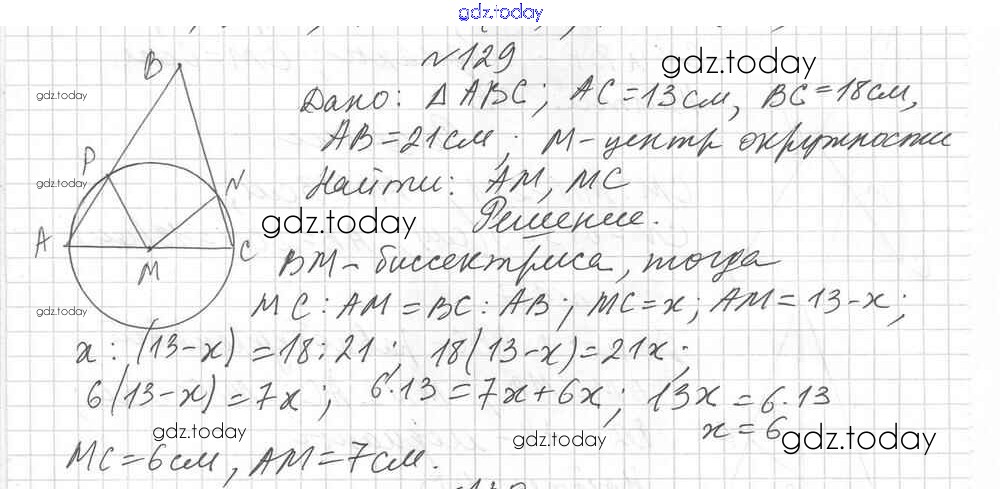 gdz.today
№129
gdz.today
Дано: ΔABC; AC=13см, BC=18см,
AB=21см; M-центр окружности
Найти: AM, MC
Решение.
BM-биссектриса, тогда
MC:AM=BC:AB; MC=x; AM=13-x;
x:(13-x)=18:21; 18(13-x)=21x;
6(13-x)=7x; 6·13=7x+6x; 13x=6·13
x=6
MC=6см, AM=7см.
B
P
N
A
M
C
gdz.today
gdz.today
gdz.today
gdz.today
gdz.today
gdz.today
gdz.today